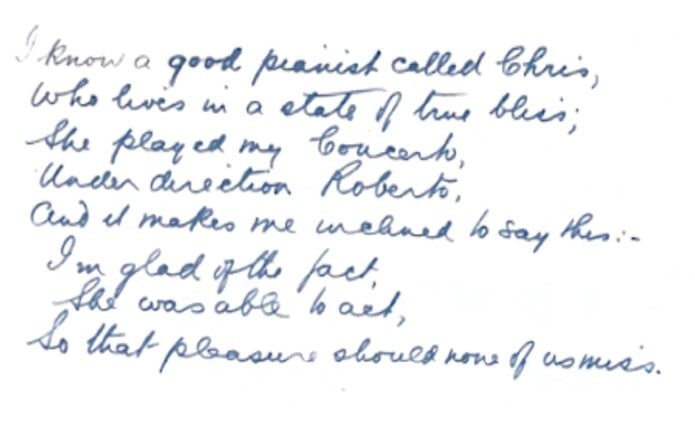 I know a good pianist called Chris,
Who lives in a state of true bliss;
She played my Concerto,
Under direction Roberto,
And it makes me inclined to say this:-
I'm glad of the fact,
She was able to act,
So that pleasure should none of us miss.